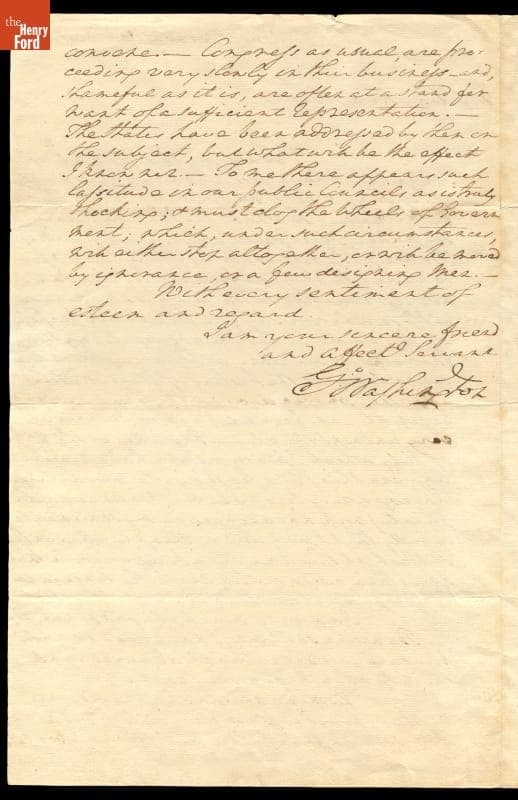 the
Henry
Ford
convene. — Congress as usual, are pro-
ceeding very slowly in their business — and,
shameful as it is, are often at a stand for
want of a sufficient representation. —
The States have been addressed by them on
the subject, but what will be the effect
I know not — To me there appears such
lassitude in our public Councils as is truly
shocking; & must clog the wheels of Govern
ment; which, under such circumstances,
will either stop altogether, or will be moved
by ignorance, or a few designing Men. —
With every sentiment of
esteem and regard.
I am your sincere friend
and affect.^d Servant
G:^o Washington